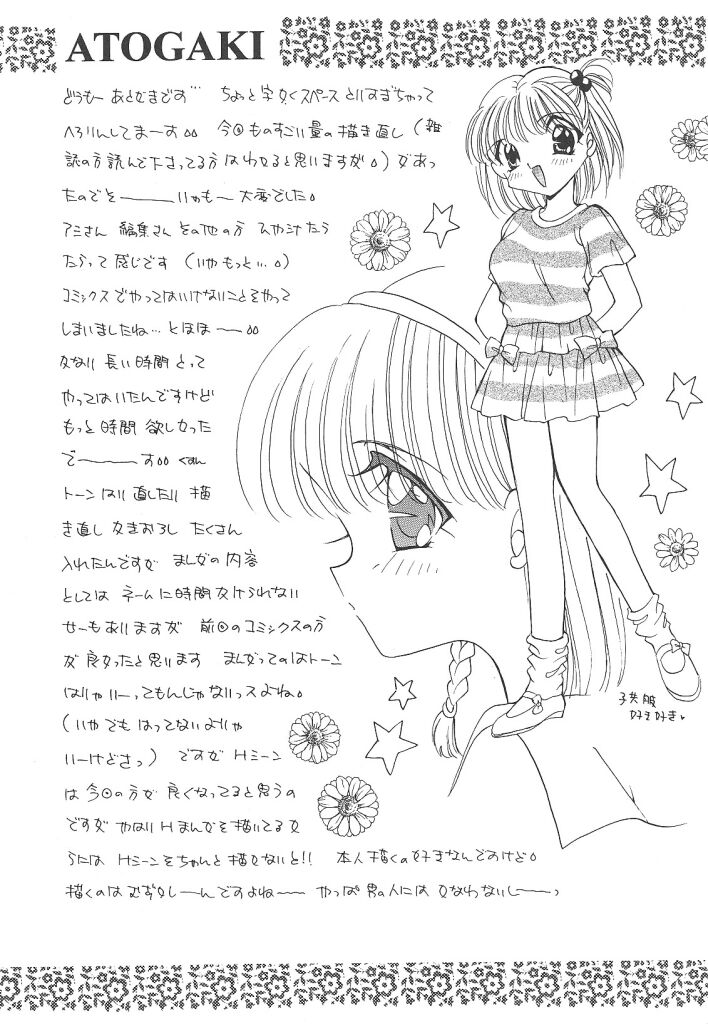 ATOGAKI
どうもー あとがきです… ちょっと字かくスペースとりすぎちゃって
へろりんしてまーす。。 今回ものすごい量の描き直し(雑
誌の方読んで下さってる方はわかると思いますが。)があっ
たのでそ———いやも〜 大変でした。
アミさん 編集さん その他の方 ひやひやたら
たらって感じです (いやもっとぃ。。)
コミックスでやってはいけないことをやって
しまいましたね… とほほ——。。
かなり 長い時間 とって
やってはいたんですけど
もっと時間 欲しかった
で————す。。
トーン はり直したり 描
き直し かきおろし たくさん
入れたんですが まんがの内容
としては ネームに時間かけられない
せーもありますが 前回のコミックスの方
が良かったと思います まんがってのはトーン
はりゃいーってもんじゃないっスよね。
(いやでも はってないよりゃ
いーけどさっ) ですが Hシーン
は今回の方が 良くなってると思うの
ですが やはりHまんがを描いてるか
らには Hシーンをちゃんと描かないと!! 本人描くの好きなんですけど。
描くのはむずかしーんですよね〜〜 やっぱ男の人には かなわないし——っ
子供服
好き好き♥